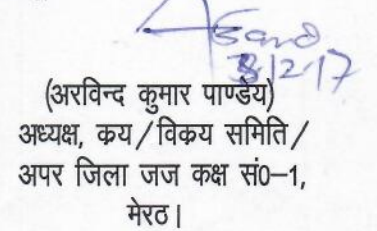 3/2/17
(अरविन्द कुमार पाण्डेय)
अध्यक्ष, क्रय/विक्रय समिति/
अपर जिला जज कक्ष सं0–1,
मेरठ।